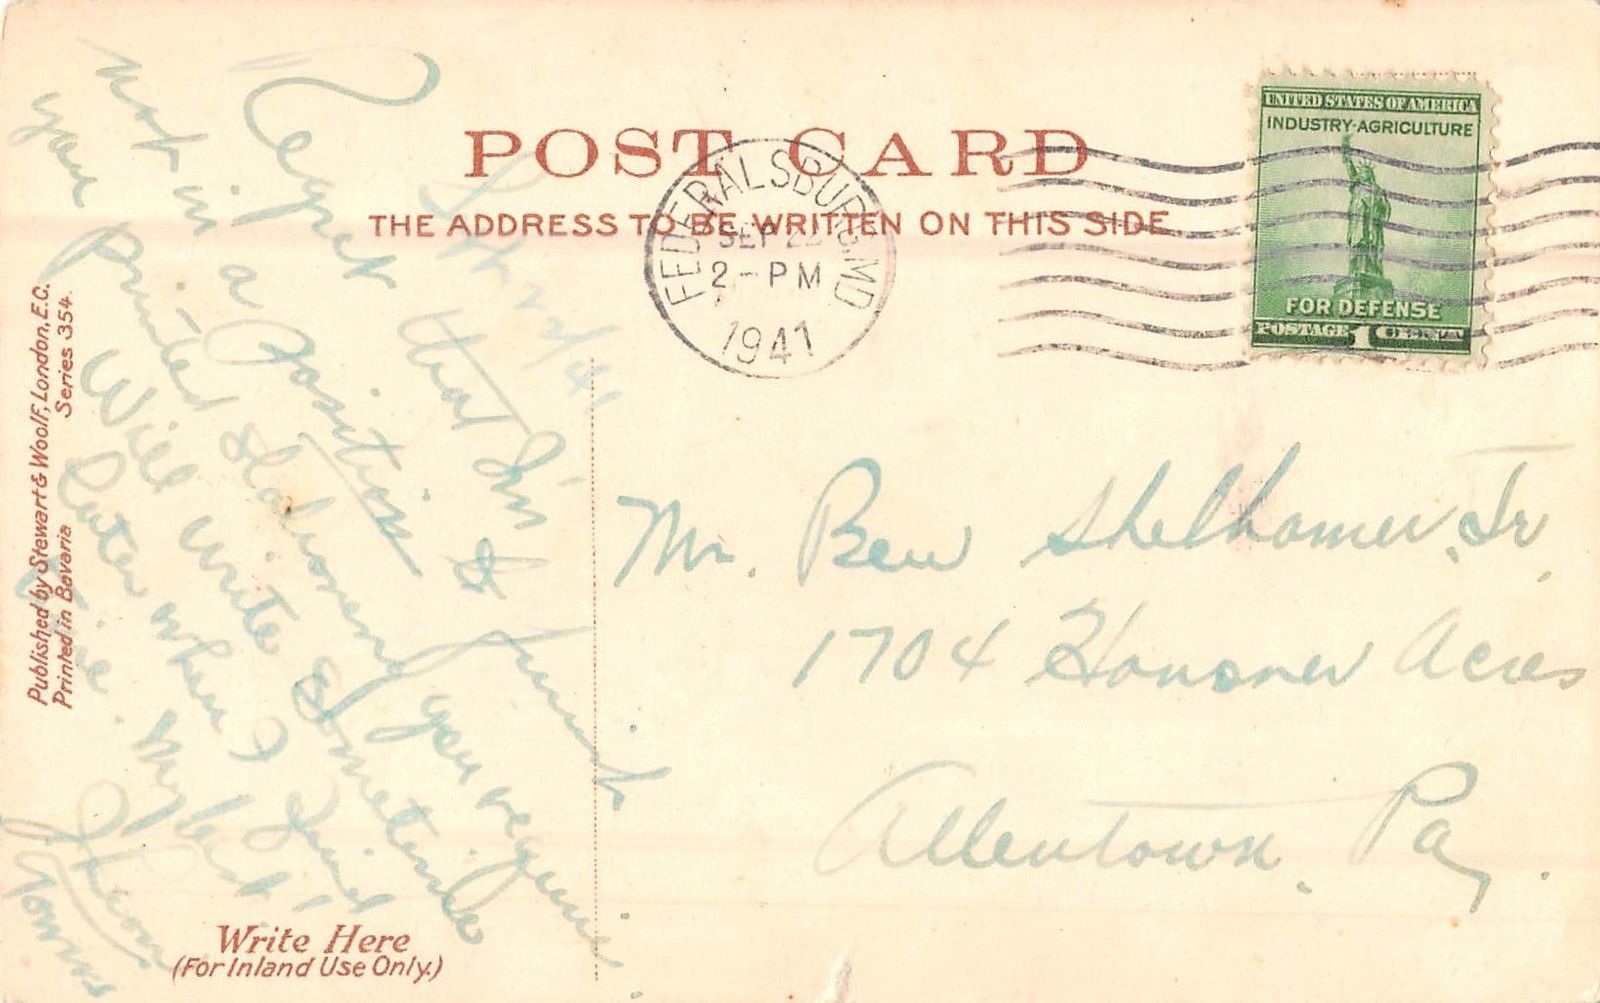 POST CARD
THE ADDRESS TO BE WRITTEN ON THIS SIDE.
FEDERALSBURG, MD
SEP 22
2 - PM
1941
UNITED STATES OF AMERICA
INDUSTRY·AGRICULTURE
FOR DEFENSE
POSTAGE 1 CENT
Published by Stewart & Woolf, London, E.C.
Series 354.
Printed in Bavaria
Regret that I'm
not in a position to furnish
your printed stationery you require.
Will write sometime
later when I find
time. My best!
Mr. Ben Shelhamer, Jr.
1704 Hausner Acres
Allentown. Pa.
Write Here
(For Inland Use Only.)